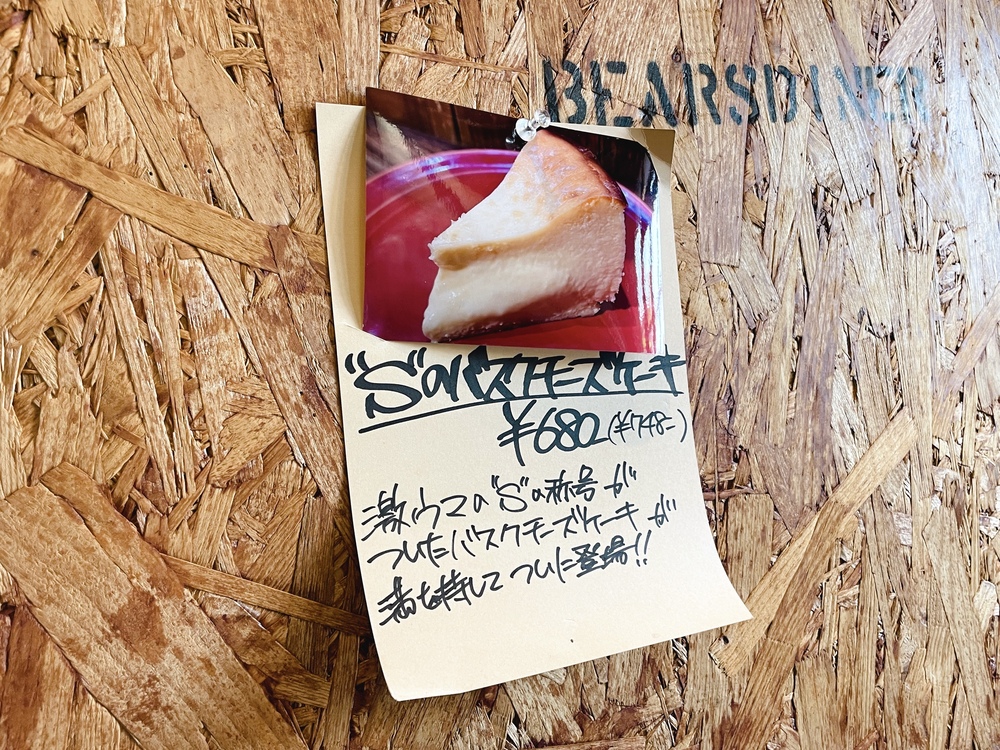 BEARSDINER
"S"のバスクチーズケーキ
¥680(¥748-)
激ウマの"S"の称号が
ついたバスクチーズケーキが
満を持してついに登場!!